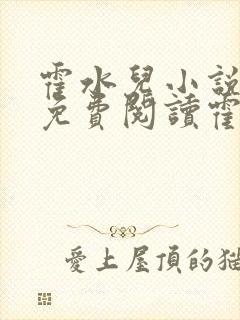 霍水兒小說
免費閱讀霍
愛上屋頂的貓